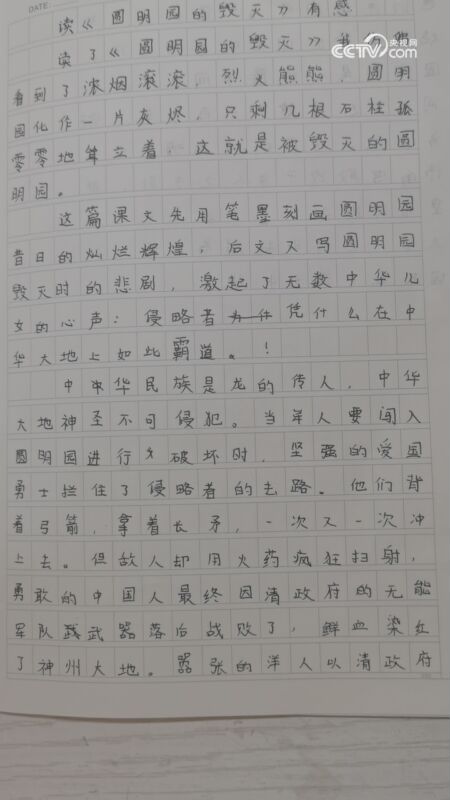 DATE:
CCTV 央视网
com
读《圆明园的毁灭》有感
读了《圆明园的毁灭》我
看到了浓烟滚滚，烈火熊熊，圆明
园化作一片灰烬，只剩几根石柱孤
零零地耸立着，这就是被毁灭的圆
明园。
这篇课文先用笔墨刻画圆明园
昔日的灿烂辉煌，后文又写圆明园
毁灭时的悲剧，激起了无数中华儿
女的心声：侵略者为什凭什么在中
华大地上如此霸道。！
中华民族是龙的传人，中华
大地神圣不可侵犯。当羊人要闯入
圆明园进行破坏时，坚强的爱国
勇士拦住了侵略者的去路。他们背
着弓箭，拿着长矛，一次又一次冲
上去。但敌人却用火药疯狂扫射，
勇敢的中国人最终因清政府的无能
军队武器落后战败了，鲜血染红
了神州大地。嚣张的洋人以清政府